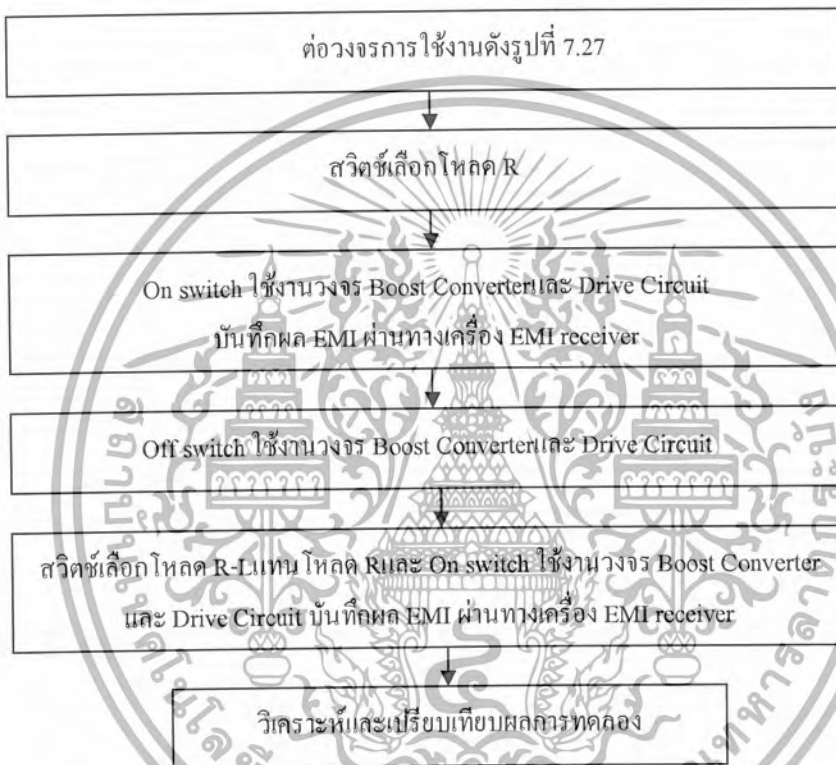 ต่อวงจรการใช้งานดังรูปที่ 7.27
สวิตช์เลือกโหลด R
On switch ใช้งานวงจร Boost Converterและ Drive Circuit
บันทึกผล EMI ผ่านทางเครื่อง EMI receiver
Off switch ใช้งานวงจร Boost Converterและ Drive Circuit
สวิตช์เลือกโหลด R-Lแทนโหลด Rและ On switch ใช้งานวงจร Boost Converter
และ Drive Circuit บันทึกผล EMI ผ่านทางเครื่อง EMI receiver
วิเคราะห์และเปรียบเทียบผลการทดลอง